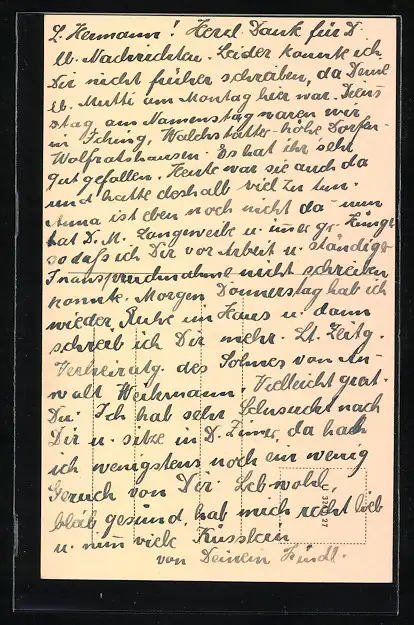 L. Hermann! Herzl. Dank für D.
lb. Nachrichten. Leider konnte ich
Dir nicht früher schreiben, da Deine
lb. Mutti am Montag hier war. Diens
tag am Namenstag waren wir
in Icking, Walchstatter-höhe Dorfen-
Wolfratshausen. Es hat ihr sehr
gut gefallen. Heute war sie auch da
und hatte deshalb viel zu tun.
Anna ist eben noch nicht da - nun
hat D. M. Langeweile u. immer gr. Hunger
so daß ich Dir vor Arbeit u. ständiger
Inanspruchnahme nicht schreiben
konnte. Morgen Donnerstag hab ich
wieder Ruhe im Haus u. dann
schreib ich Dir mehr. Lt. Zeitg.
Verheiratg. des Sohnes von An-
walt Weihmann. Vielleicht grat.
Du. Ich hab sehr Sehnsucht nach
Dir u. sitze in D. Zimer, da hab
ich wenigstens noch ein wenig
Geruch von Dir. Leb wohl,
bleib gesund, hab mich recht lieb
u. nim viele Küsslein
von Deinem Hundl.